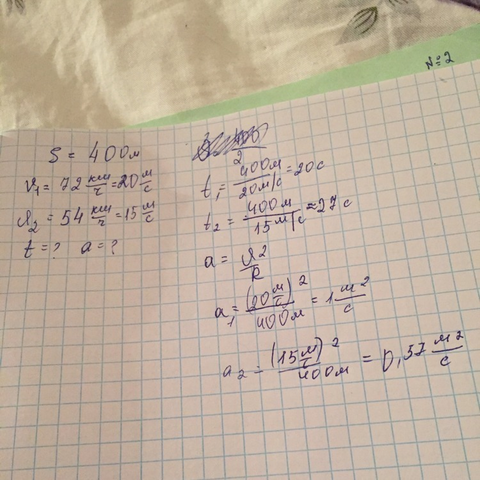 №2
S = 400м
V₁ = 72 км/ч = 20 м/с
V₂ = 54 км/ч = 15 м/с
t = ? a = ?
t₁ = 400м/20м/с = 20с
t₂ = 400м/15м/с ≈ 27с
a = V²/R
a₁ = (20 м/с)²/400м = 1 м²/с
a₂ = (15 м/с)²/400м = 0,57 м²/с